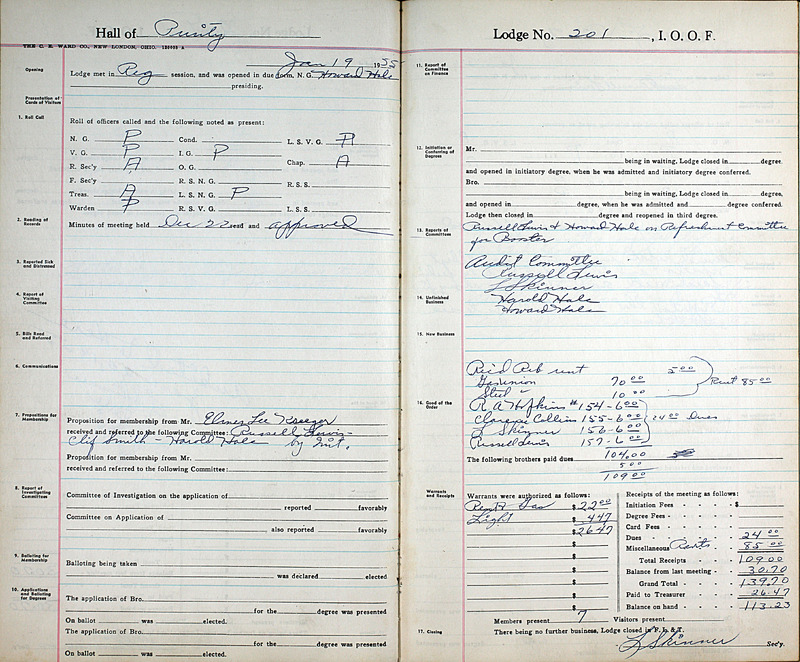 Hall of Purity
THE C. E. WARD CO., NEW LONDON, OHIO.
Jan 19 1955
Opening
Lodge met in Reg session, and was opened in due form, N. G. Howard Hale
presiding.
Presentation of
Cards of Visitors
1. Roll Call
Roll of officers called and the following noted as present:
N. G. P Cond. L. S. V. G. P
V. G. P I. G. P Chap. A
R. Sec'y A O. G.
F. Sec'y R. S. N. G. R. S. S.
Treas. A L. S. N. G. P
Warden P R. S. V. G. L. S. S.
2. Reading of
Records
Minutes of meeting held Dec 22 read and approved
3. Reported Sick
and Distressed
4. Report of
Visiting
Committee
5. Bills Read
and Referred
6. Communications
7. Propositions for
Membership
Proposition for membership from Mr. Elmer Lee Kreeger
received and referred to the following Committee: Russell Lewis
Clif Smith - Harold Hale by Init.
Proposition for membership from Mr.
received and referred to the following Committee:
8. Report of
Investigating
Committees
Committee of Investigation on the application of
reported favorably
Committee on Application of
also reported favorably
9. Balloting for
Membership
Balloting being taken
was declared elected
10. Applications
and Balloting
for Degrees
The application of Bro.
for the degree was presented
On ballot was elected.
The application of Bro.
for the degree was presented
On ballot was elected.
Lodge No. 201, I. O. O. F.
11. Report of
Committee
on Finance
12. Initiation or
Conferring of
Degrees
Mr.
being in waiting, Lodge closed in degree
and opened in initiatory degree, when he was admitted and initiatory degree conferred.
Bro.
being in waiting, Lodge closed in degree,
and opened in degree, when he was admitted and degree conferred.
Lodge then closed in degree and reopened in third degree.
13. Reports of
Committees
Russell Lewis & Howard Hale on Refreshment Committee
for Booster
Audit Committee
Russell Lewis
L Skinner
Harold Hale
Howard Hale
14. Unfinished
Business
15. New Business
Rec'd Reb rent 5.00
70 00 Rent 85 00
10 00
16. Good of the
Order
R. A Hopkins #154-6 00
Clarence Collins 155-6 00 24 00 Dues
L Skinner 156-6 00
Russell Lewis 157-6 00
The following brothers paid dues 104.00
5 00
109 00
Warrants
and Receipts
Warrants were authorized as follows:
Gas $ 22 00
Light $ 4 47
$ 26 47
$
$
$
$
$
$
Receipts of the meeting as follows:
Initiation Fees $
Degree Fees
Card Fees
Dues 24 00
Miscellaneous Rents 85 00
Total Receipts 109 00
Balance from last meeting 30.70
Grand Total 139.70
Paid to Treasurer 26.47
Balance on hand 113.23
Members present 7 Visitors present
17. Closing
There being no further business, Lodge closed in F. L. & T.
L Skinner Sec'y.